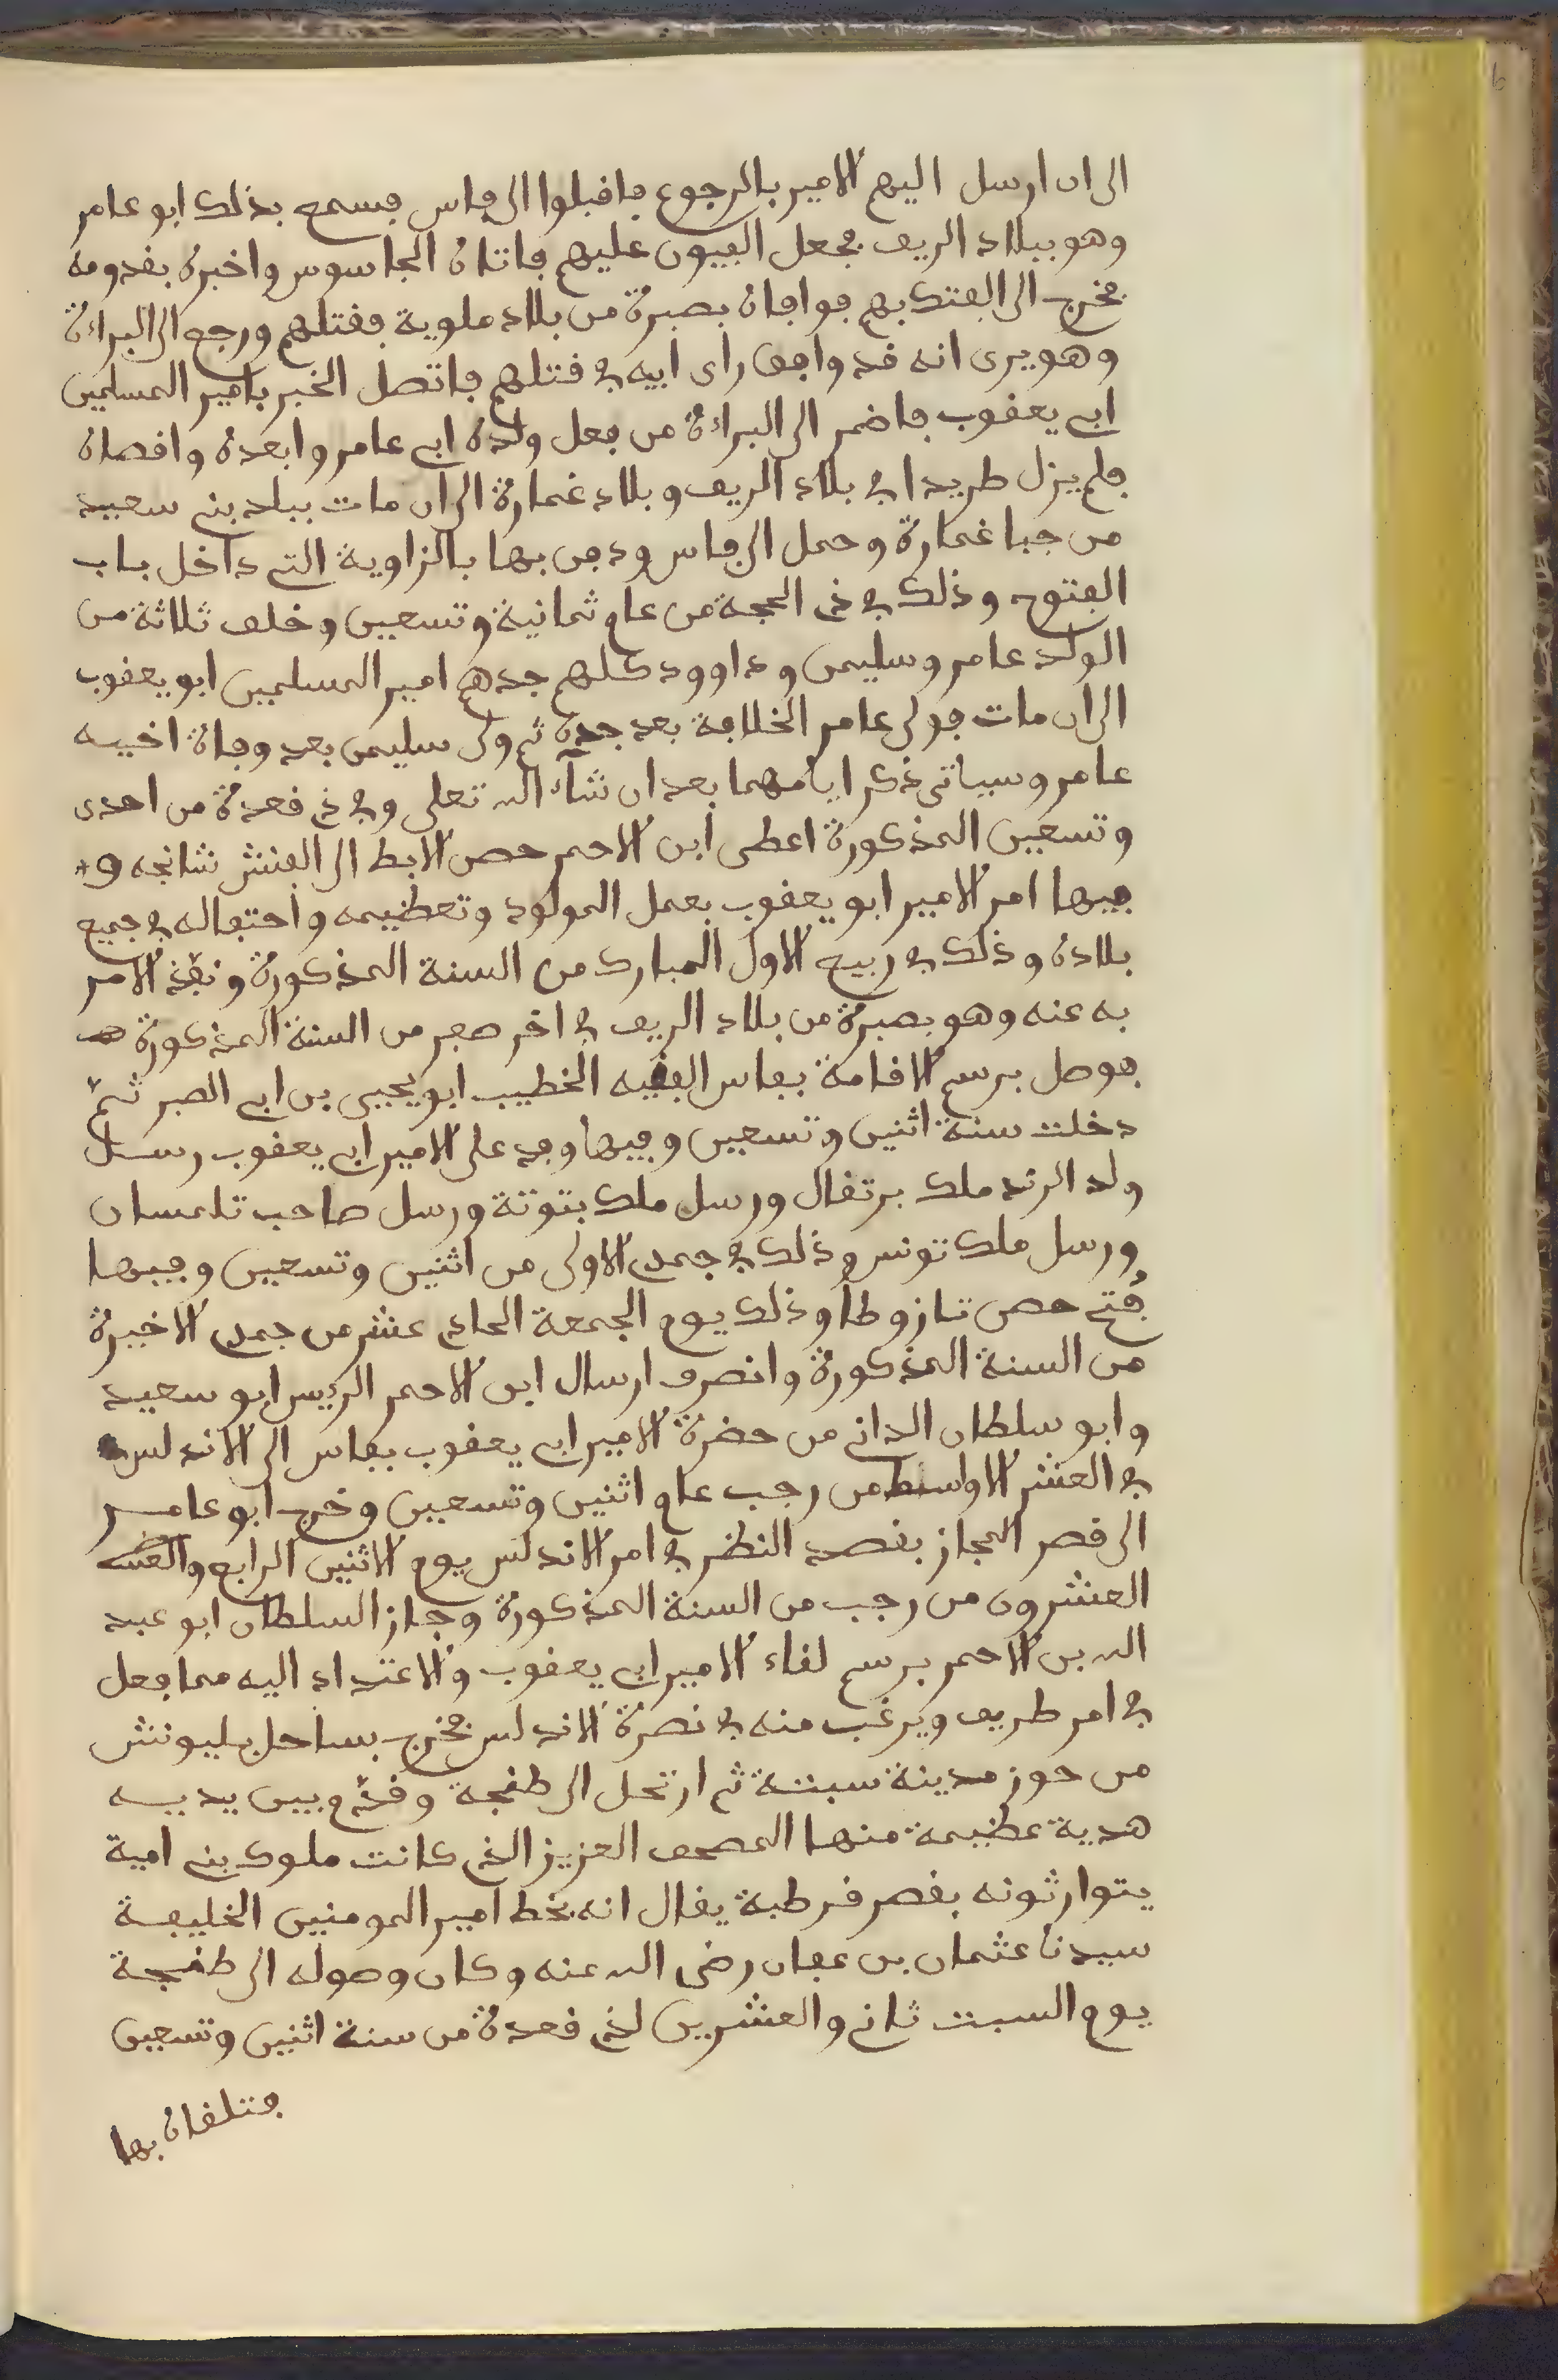 الى ان ارسل اليهم الامير بالرجوع فاقبلوا الى فاس فسمع بذلك ابو عامر
وهو ببلاد الريف فجعل العيون عليهم فاتاه الجاسوس واخبره بقدومه
فخرج الى الفتك بهم فوافاه بصبرة من بلاد ملوية فقتلهم ورجع الى البراءة
وهو يرى انه قد وافق راى ابيه في قتلهم فاتصل الخبر بامير المسلمين
ابي يعقوب فاضمر الى البراءة من فعل ولده ابي عامر وابعده واقصاه
فلم يزل طريدا في بلاد الريف وبلاد غمارة الى ان مات ببلد بني سعيد
من جبا غمارة وحمل الى فاس ودفن بها بالزاوية التي داخل باب
الفتوح وذلك في ذي الحجة من عام ثمانية وتسعين وخلف ثلاثة من
الولد عامر وسليمن وداوود كلهم جدهم امير المسلمين ابو يعقوب
الى ان مات فولى عامر الخلافة بعد جده ثم ولى سليمن بعد وفاة اخيه
عامر وسياتي ذكر ايامهما بعد ان شآء الله تعلى وفي ذي قعدة من احدى
وتسعين المذكورة اعطى ابن الاحمر حصن الابط الى الفنش شانجه و
فيها امر الامير ابو يعقوب بعمل المولود وتعظيمه واحتفاله في جميع
بلاده وذلك في ربيع الاول المبارك من السنة المذكورة ونفّذ الامر
به عنه وهو بصبرة من بلاد الريف في اخر صفر من السنة المذكورة
فوصل برسم الاقامة بفاس الفقيه الخطيب ابو يحيى بن ابي الصبر ثم
دخلت سنة اثنين وتسعين وفيها وفد على الامير ابي يعقوب رسل
ولد الرند ملك برتقال ورسل ملك بتونة ورسل صاحب تلمسان
ورسل ملك تونس وذلك في جمدى الاولى من اثنين وتسعين وفيها
فُتح حصن تازوطا وذلك يوم الجمعة الحادي عشر من جمدى الاخيرة
من السنة المذكورة وانصرف ارسال ابن الاحمر الريس ابو سعيد
وابو سلطان الداني من حضرة الامير ابي يعقوب بفاس الى الاندلس
في العشر الاواسط من رجب عام اثنين وتسعين وخرج ابو عامر
الى قصر المجاز بقصد النظر في امر الاندلس يوم الاثنين الرابع والعشـ
العشرون من رجب من السنة المذكورة وجاز السلطان ابو عبد
الله بن الاحمر برسم لقاء الامير ابي يعقوب والاعتداد اليه مما فعل
في امر طريف ويرغب منه في نصرة الاندلس فخرج بساحل بليونش
من حوز مدينة سبتة ثم ارتحل الى طنجة وقدّم بين يديه
هدية عظيمة منها المصحف العزيز الذي كانت ملوك بني امية
يتوارثونه بقصر قرطبة يقال انه بخط امير المومنين الخليفة
سيدنا عثمان بن عفان رضى الله عنه وكان وصوله الى طنجة
يوم السبت ثاني والعشرين لذي قعدة من سنة اثنين وتسعين
فتلقاه بها